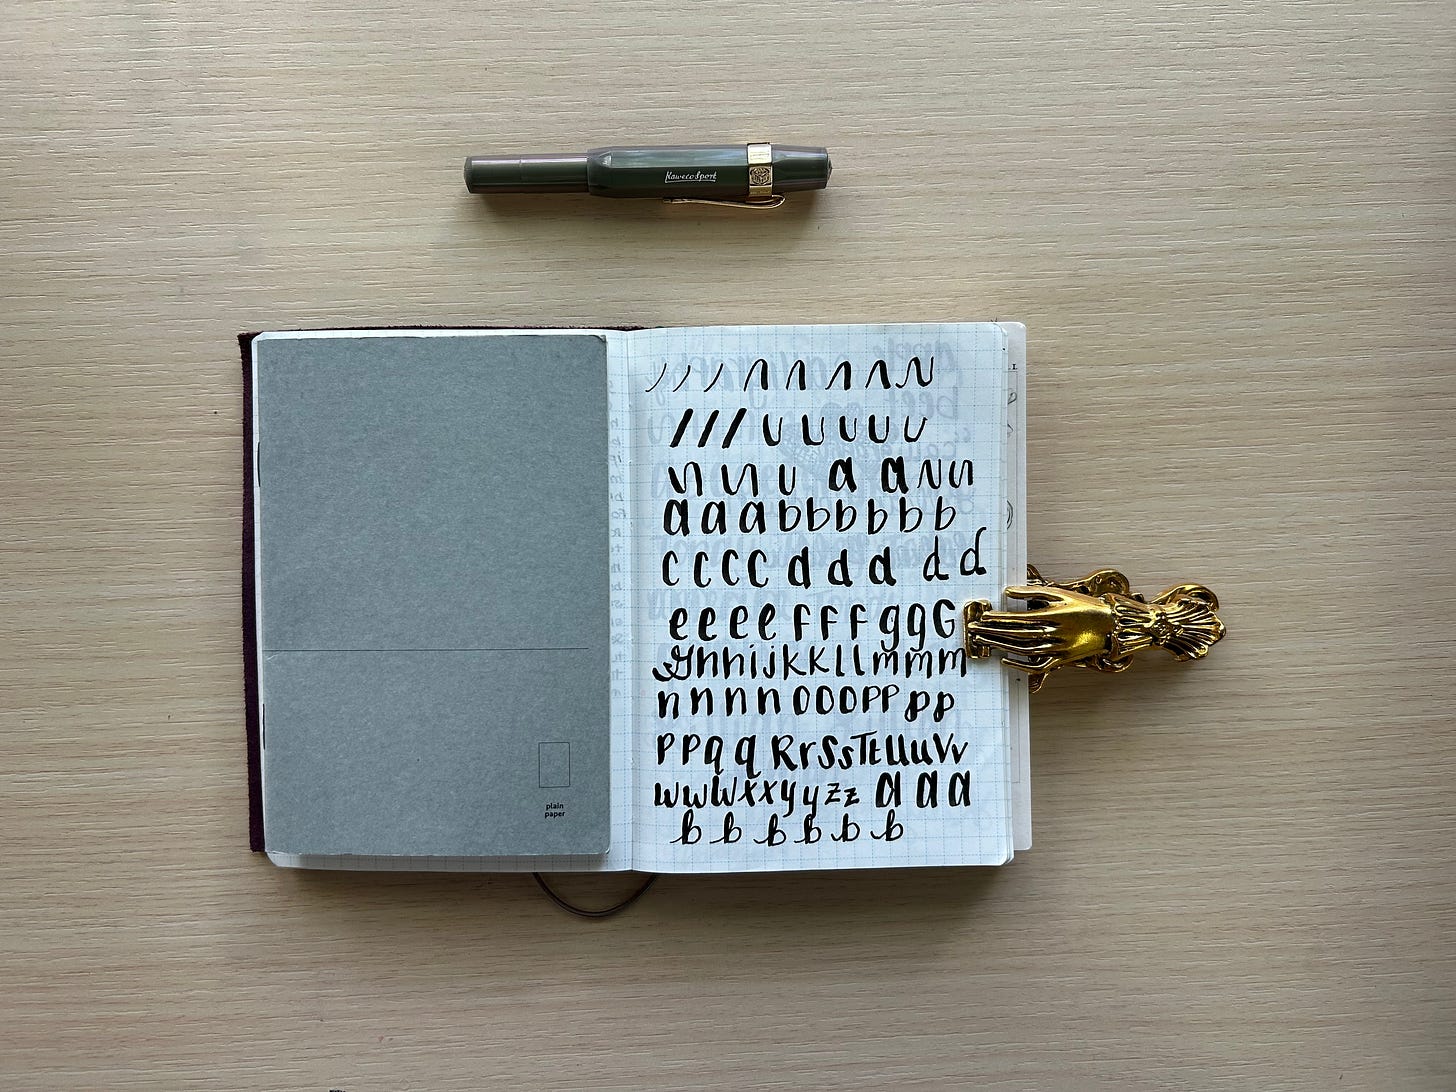 Kaweco Sport
plain
paper
a a
a a a b b b b b b
c c c c d d d d d
e e e e f f f g g G
g h h i j k k l l m m m
n n n n o o o p p p p
p p q q R r S s T t U u V v
w w W x x y y z z a a a
b b b b b b